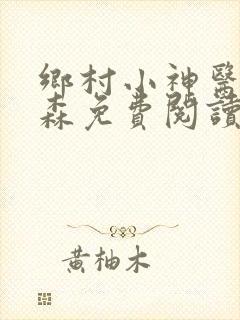 鄉村小神醫
森免費閱讀
黃柚木